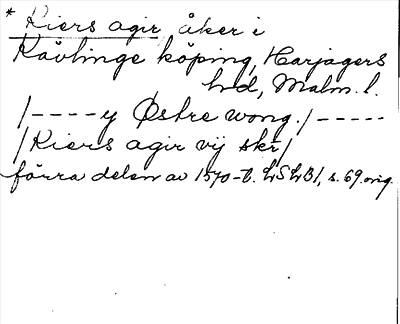 * Kiers agir, åker i
Kävlinge köping, Harjagers
hd, Malm. l.
/----y Østre wong./-----
/Kiers agir vij skr/
förra delen av 1570-t. LSLB1, s. 69.orig.